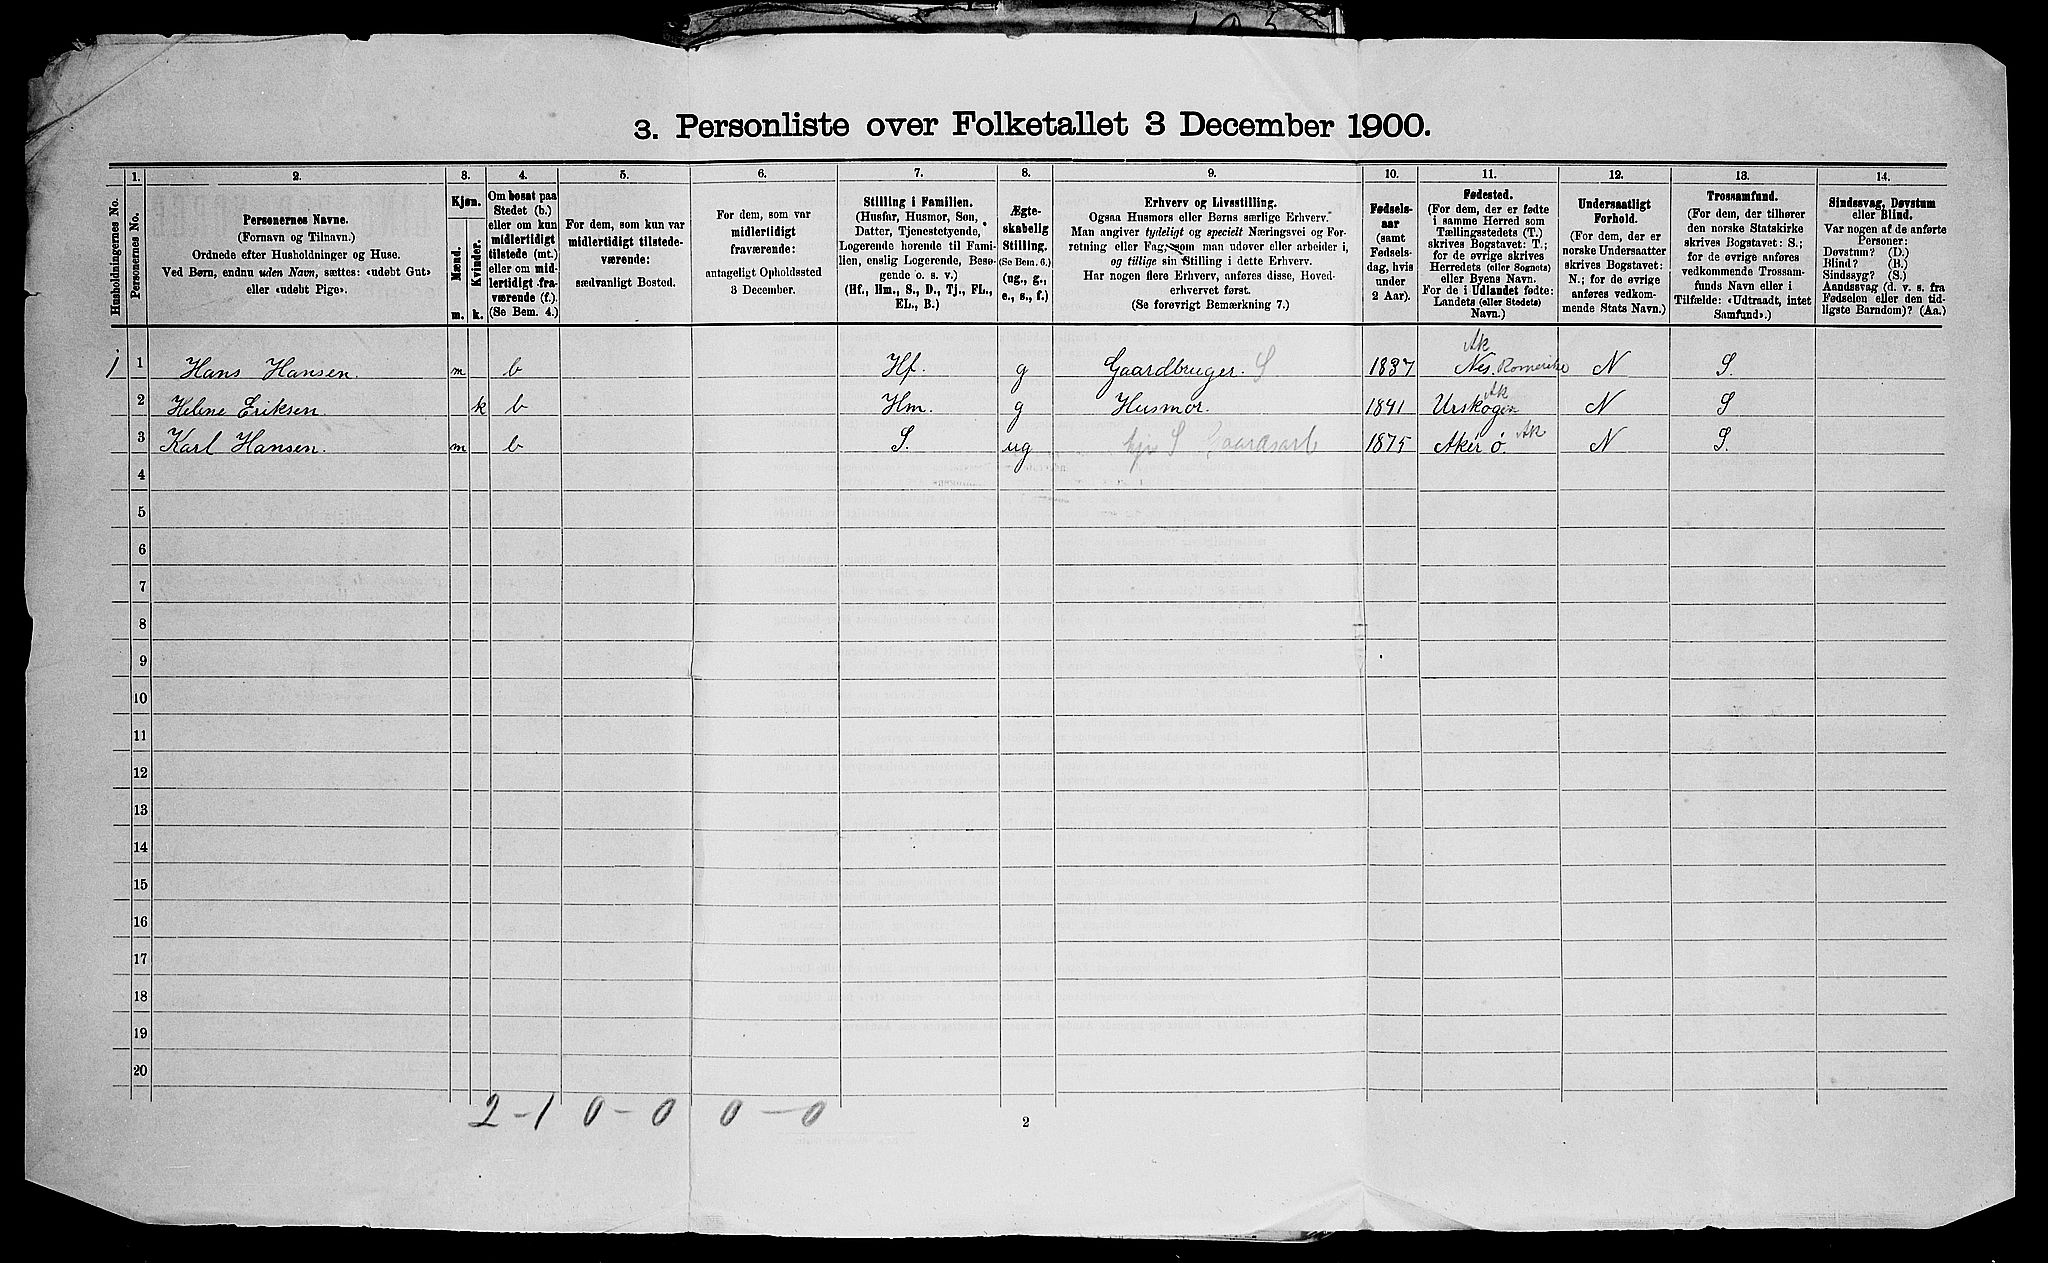 3. Personliste over Folketallet 3 December 1900.
Husholdningernes No.
1.
Personernes No.
2.
Personernes Navne.
(Fornavn og Tilnavn.)
Ordnede efter Husholdninger og Huse.
Ved Børn, endnu uden Navn, sættes: «udøbt Gut»
eller «udøbt Pige».
3.
Kjøn.
Mænd.
Kvinder.
m.
k.
4.
Om bosat paa
Stedet (b.)
eller om kun
midlertidigt
tilstede (mt.)
eller om mid-
lertidigt fra-
værende (f.)
(Se Bem. 4.)
5.
For dem, som kun var
midlertidigt tilstede-
værende:
sædvanligt Bosted.
6.
For dem, som var
midlertidigt
fraværende:
antageligt Opholdssted
3 December.
7.
Stilling i Familien.
(Husfar, Husmor, Søn,
Datter, Tjenestetyende,
Logerende hørende til Fami-
lien, enslig Logerende, Besø-
gende o. s. v.)
(Hf., Hm., S., D., Tj., FL.,
EL., B.)
8.
Ægte-
skabelig
Stilling.
(Se Bem. 6.)
(ug., g.,
e., s., f.)
9.
Erhverv og Livsstilling.
Ogsaa Husmors eller Børns særlige Erhverv.
Man angiver tydeligt og specielt Næringsvei og For-
retning eller Fag, som man udøver eller arbeider i,
og tillige sin Stilling i dette Erhverv.
Har nogen flere Erhverv, anføres disse, Hoved-
erhvervet først.
(Se forøvrigt Bemærkning 7.)
10.
Fødsels-
aar
(samt
Fødsels-
dag, hvis
under
2 Aar).
11.
Fødested.
(For dem, der er fødte
i samme Herred som
Tællingsstedets (T.)
skrives Bogstavet: T.;
for de øvrige skrives
Herredets (eller Sognets)
eller Byens Navn.
For de i Udlandet fødte:
Landets (eller Stedets)
Navn.)
12.
Undersaatligt
Forhold.
(For dem, der er
norske Undersaatter
skrives Bogstavet:
N.; for de øvrige
anføres vedkom-
mende Stats Navn.)
13.
Trossamfund.
(For dem, der tilhører
den norske Statskirke
skrives Bogstavet: S.;
for de øvrige anføres
vedkommende Trossam-
funds Navn eller i
Tilfælde: «Udtraadt, intet
Samfund».)
14.
Sindssvag, Døvstum
eller Blind.
Var nogen af de anførte
Personer:
Døvstum? (D.)
Blind? (B.)
Sindssyg? (S.)
Aandssvag (d. v. s. fra
Fødselen eller den tid-
ligste Barndom)? (Aa.)
1 1 Hans Hansen. m b Hf. g Gaardbruger. S 1837 Ak Nes. Romerike N S.
2 Helene Eriksen. k b Hm. g Husmor. 1841 Urskogen Ak N S
3 Karl Hansen. m b S. ug S Gaardsarb 1875 Aker ø. Ak N S.
4
5
6
7
8
9
10
11
12
13
14
15
16
17
18
19
20
2-1 0-0 0-0
2